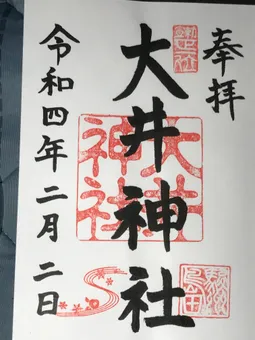 奉拝
大井神社
令和四年二月二日
大井
神社